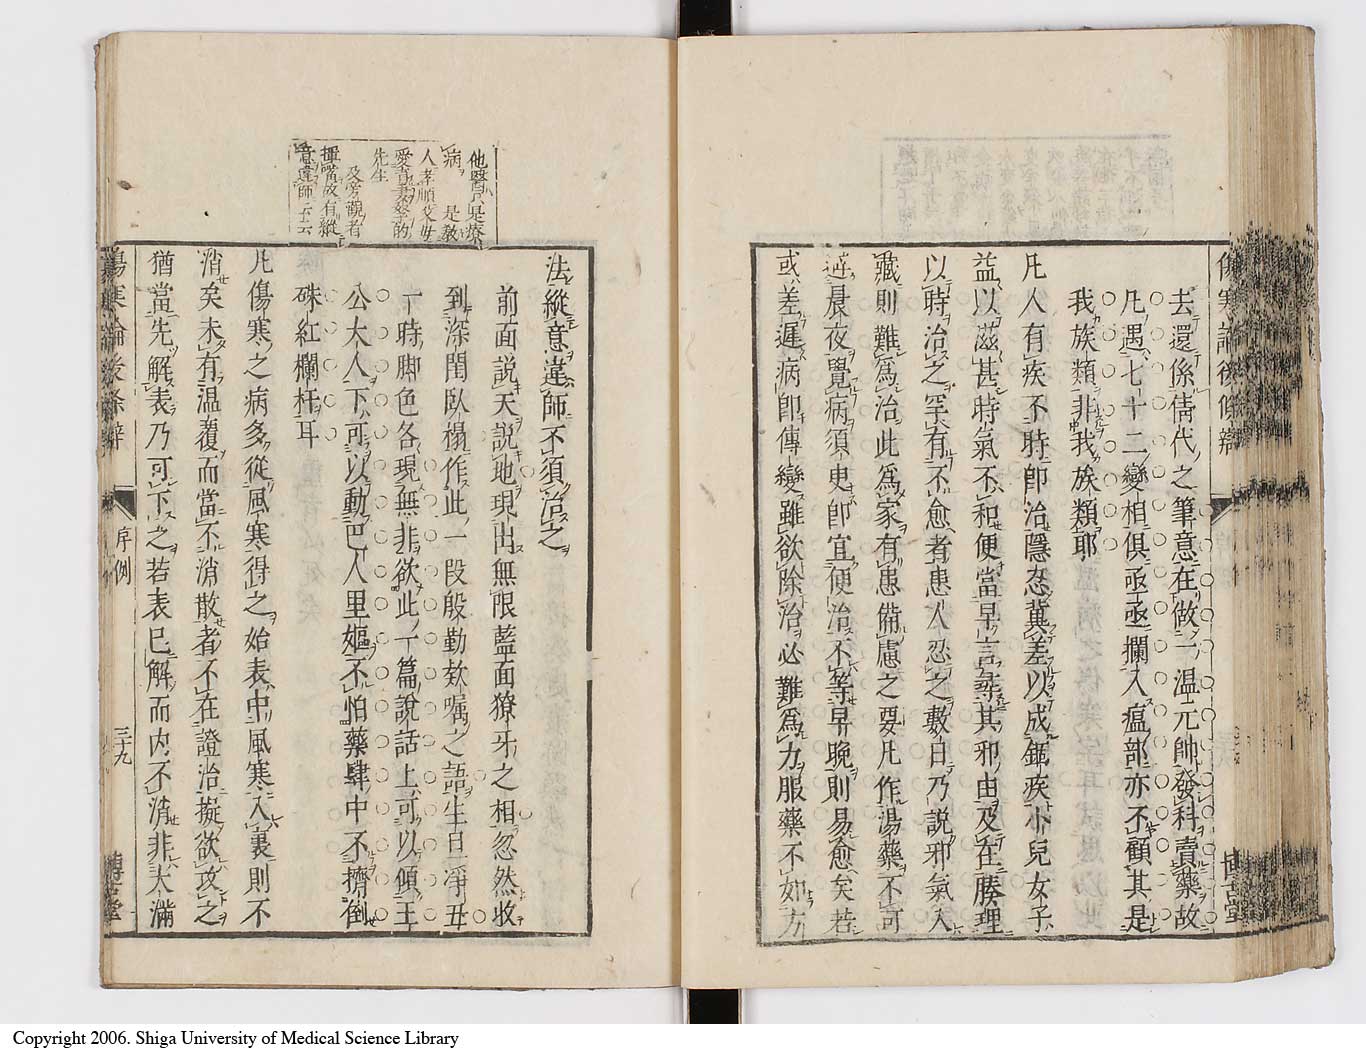 傷寒論後條辨
去還係倩代之筆意在做一温元帥發科賣藥故
凡遇七十二變相俱亟亟攔入瘟部亦不顧其是
我族類非我族類耶
凡人有疾不時即治隱忍冀差以成錮疾小兒女子
益以滋甚時氣不和便當早言尋其邪由及在腠理
以時治之罕有不愈者患人忍之數日乃說邪氣入
藏則難爲治此爲家有患備慮之要凡作湯藥不可
避晨夜覺病須臾即宜便治不等早晚則易愈矣若
或差遲病即傳變雖欲除治必難爲力服藥不如方
博古堂
法縱意違師不須治之
他醫只是療
病 是教
人孝順父母
愛
的
先生
及旁觀者
故有縱
意違師云云
前面說天說地現出無限藍面獠牙之相忽然收
到深閨臥榻作此一段殷勤欵囑之語生旦淨丑
一時脚色各現無非欲此一篇說話上可以傾王
公大人下可以動巴人里嫗不怕藥肆中不擠倒
硃紅欄杆耳
凡傷寒之病多從風寒得之始表中風寒入裏則不
消矣未有温覆而當不消散者不在證治擬欲攻之
猶當先解表乃可下之若表已解而内不消非大滿
傷寒論後條辨
序例
三十九
博古堂
Copyright 2006. Shiga University of Medical Science Library